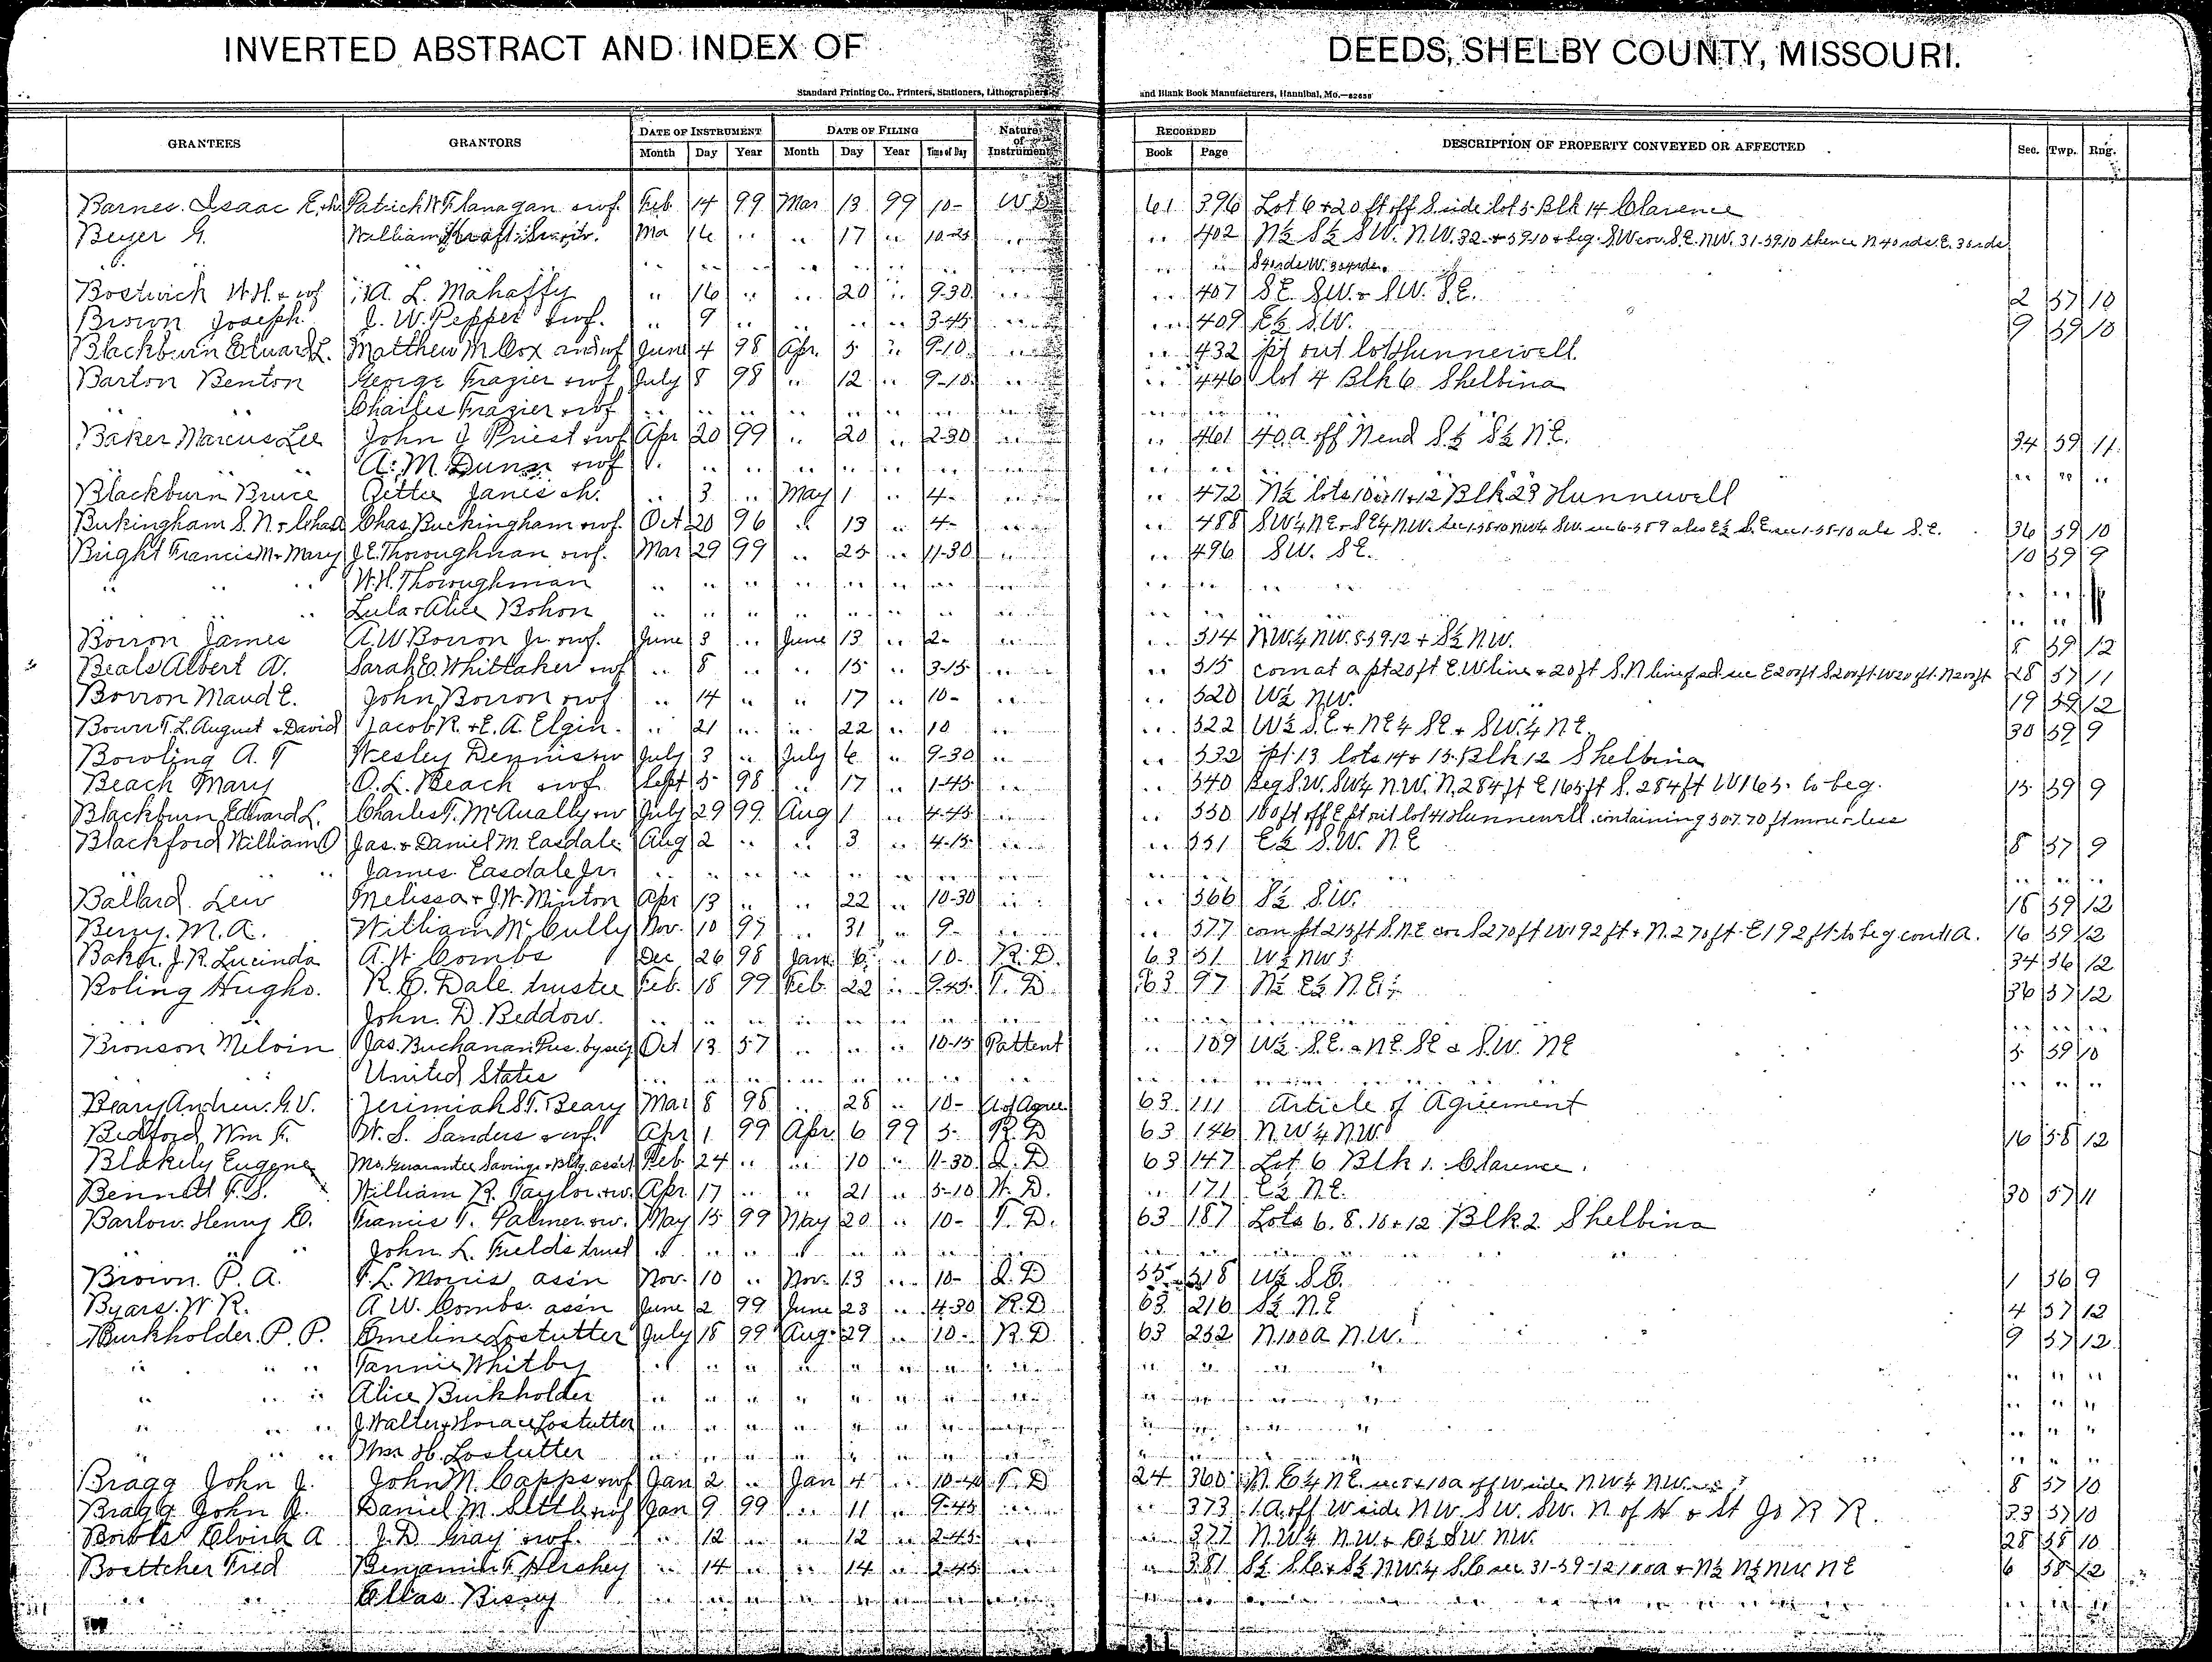 INVERTED ABSTRACT AND INDEX OF DEEDS, SHELBY COUNTY, MISSOURI.
Standard Printing Co., Printers, Stationers, Lithographers and Blank Book Manufacturers, Hannibal, Mo.
GRANTEES GRANTORS DATE OF INSTRUMENT DATE OF FILING Nature of Instrument RECORDED DESCRIPTION OF PROPERTY CONVEYED OR AFFECTED Sec. Twp. Rng.
Month Day Year Month Day Year Time of Day Book Page
Barnes Isaac E. Patrick W Flanagan & wf. Feb 14 99 Mar 13 99 10- W D 61 396 Lot 6 + 20 ft off S side lot 5 Blk 14 Clarence
Beyer G. William Mar 17 .. 10-25 .. .. 402 N½ S½ SW. N.W. 32 + 59-10 + beg. SW cor. S.E. NW. 31-59-10 thence N 4 rds. E. 3 rds
Bostwick W.H. & wf A. L. Mahaffy .. 16 .. .. 20 .. 9-30 .. .. 407 SE. SW. + SW. S.E. 2 57 10
Brown Joseph J. W. Pepper & wf. .. 9 .. .. .. .. 3-45 .. .. 409 E½ S.W. 9 59 10
Blackburn Edward L. Matthew M Cox and wf June 4 98 Apr. 5 .. 9-10 .. .. 432 pt out lot Hunnewell
Barton Benton George Frazier & wf July 8 98 .. 12 .. 9-10 .. .. 446 lot 4 Blk 6 Shelbina
Charles Frazier & wf
Baker Marcus Lee John J Priest & wf Apr 20 99 .. 20 .. 2-30 .. .. 461 40 a off N end S½ S½ N.E. 34 59 11
A. M. Dunn & wf
Blackburn Bruce Gettie Janes .. 3 .. May 1 .. 4- .. .. 472 N½ lots 10 11 + 12 Blk 23 Hunnewell
Bukingham S. N. Chas. Buckingham & wf. Oct 20 96 .. 13 .. 4- .. .. 488 SW¼ NE. + SE¼ NW. 36 59 10
Bright Francis M + Mary J. E. Thoroughman & wf. Mar 29 99 .. 25 .. 11-30 .. .. 496 SW. SE. 10 59 9
W. H. Thoroughman
Lula + Alice Bohon
Borron James A W Borron Jr. & wf. June 3 .. June 13 .. 2- .. .. 514 NW.¼ NW. 8-59-12 + S½ N.W. 8 59 12
Beals Albert A. Sarah E. Whittaker & wf .. 8 .. .. 15 .. 3-15 .. .. 515 com at a pt 20 ft E. W line + 20 ft S. N line 28 57 11
Borron Maud E. John Borron & wf .. 14 .. .. 17 .. 10- .. .. 520 W½ N.W. 19 59 12
T. L. August + David Jacob R. + E. A. Elgin. .. 21 .. .. 22 .. 10 .. .. 522 W½ S.E. + NE¼ SE + SW.¼ NE. 30 59 9
Bowling A. T Wesley Dennis & w July 3 .. July 6 .. 9-30 .. .. 532 pt 13 lots 14 + 15 Blk 12 Shelbina
Beach Mary O. L. Beach & wf Sept 5 98 .. 17 .. 1-45 .. .. 540 Beg S.W. SW¼ N.W. N. 284 ft E 165 ft S. 284 ft W 165. to beg. 15 59 9
Blackburn Edward L. Charles T. McAnally & w July 29 99 Aug 1 .. 4-45 .. .. 550 100 ft off E pt out lot 41 Hunnewell containing 30770 ft more or less
Blackford William O Jas. + Daniel M. Easdale Aug 2 .. .. 3 .. 4-15 .. .. 551 E½ S.W. N.E 8 57 9
James Easdale Jr.
Ballard Lew Melissa + J. W. Minton Apr 13 .. .. 22 .. 10-30 .. .. 566 S½ S.W. 18 59 12
Berry M. A. William McCully Nov. 10 97 .. 31 .. 9- .. .. 577 com pt 213 ft S. N.E cor S 270 ft W 192 ft + N. 270 ft E 192 ft to beg cont 1 A. 16 59 12
Baker. J. R. Lucinda A. W. Combs Dec 26 98 Jan. 6 .. 10- R. D. 63 51 W½ NW 34 56 12
Boling Hugh R. C. Dale trustee Feb. 18 99 Feb. 22 .. 9-45 T. D. 63 97 N½ E½ N.E¼ 36 57 12
John. D. Beddow.
Bronson Melvin Jas. Buchanan Pres. by secy Oct 13 57 .. .. .. 10-15 Pattent .. 109 W½ S.E. & NE SE & S.W. NE 5 59 10
United States
Beary Andrew. G. V. Jerimiah S. T. Beary Mar 8 98 .. 28 .. 10- A of Agree 63 111 Article of Agreement
Bedford Wm F. W. S. Sanders & wf. Apr 1 99 Apr. 6 99 3- R. D 63 146 N.W¼ N.W. 16 58 12
Blakely Eugene Mo. Guarantee Savings + Bldg. assn Feb. 24 .. .. 10 .. 11-30 Q. D 63 147 Lot 6 Blk 1. Clarence.
Bennett T. S. William R. Taylor & w. Apr. 17 .. .. 21 .. 5-10 W. D. .. 171 E½ N.E. 30 57 11
Barlow Henry C. Francis T. Palmer & w. May 15 99 May 20 .. 10- T. D. 63 187 Lots 6. 8. 10 + 12 Blk 2 Shelbina
John. L. Fields trust
Brown. P. A. T. L. Morris assn Nov. 10 .. Nov. 13 .. 10- Q. D 55 218 W½ S.E. 1 56 9
Byars. W. R. A W. Combs. assn June 2 99 June 23 .. 4-30 R. D 63 216 S½ N.E 4 57 12
Burkholder. P. P. Emeline Lostutter July 18 99 Aug. 29 .. 10- R. D 63 252 N 100 a N.W. 9 57 12
Fannie Whitby
Alice Burkholder
J. Walter + Horace Lostutter
Wm H. Lostutter
Bragg John J. John M. Capps & wf Jan 2 .. Jan 4 .. 10-40 T. D 24 360 N. E¼ NE. sec 8 + 10a off W side NW¼ NW. 8 57 10
Bragg John J. Daniel M. Settle & wf Jan 9 99 .. 11 .. 9-45 .. .. 373 1. A. off W side NW. SW. SW. N of H & St Jo R R. 33 57 10
Elvira A J. D. Gray & wf. .. 12 .. .. 12 .. 2-45 .. .. 377 N.W¼ N.W. + E½ SW NW. 28 58 10
Boettcher Fred Benjamin F. Hershey .. 14 .. .. 14 .. 2-45 .. .. 381 S½ S.E. + S½ NW.¼ S.E sec 31-59-12 100a + N½ N½ NW NE 6 58 12
Ellas Bissy